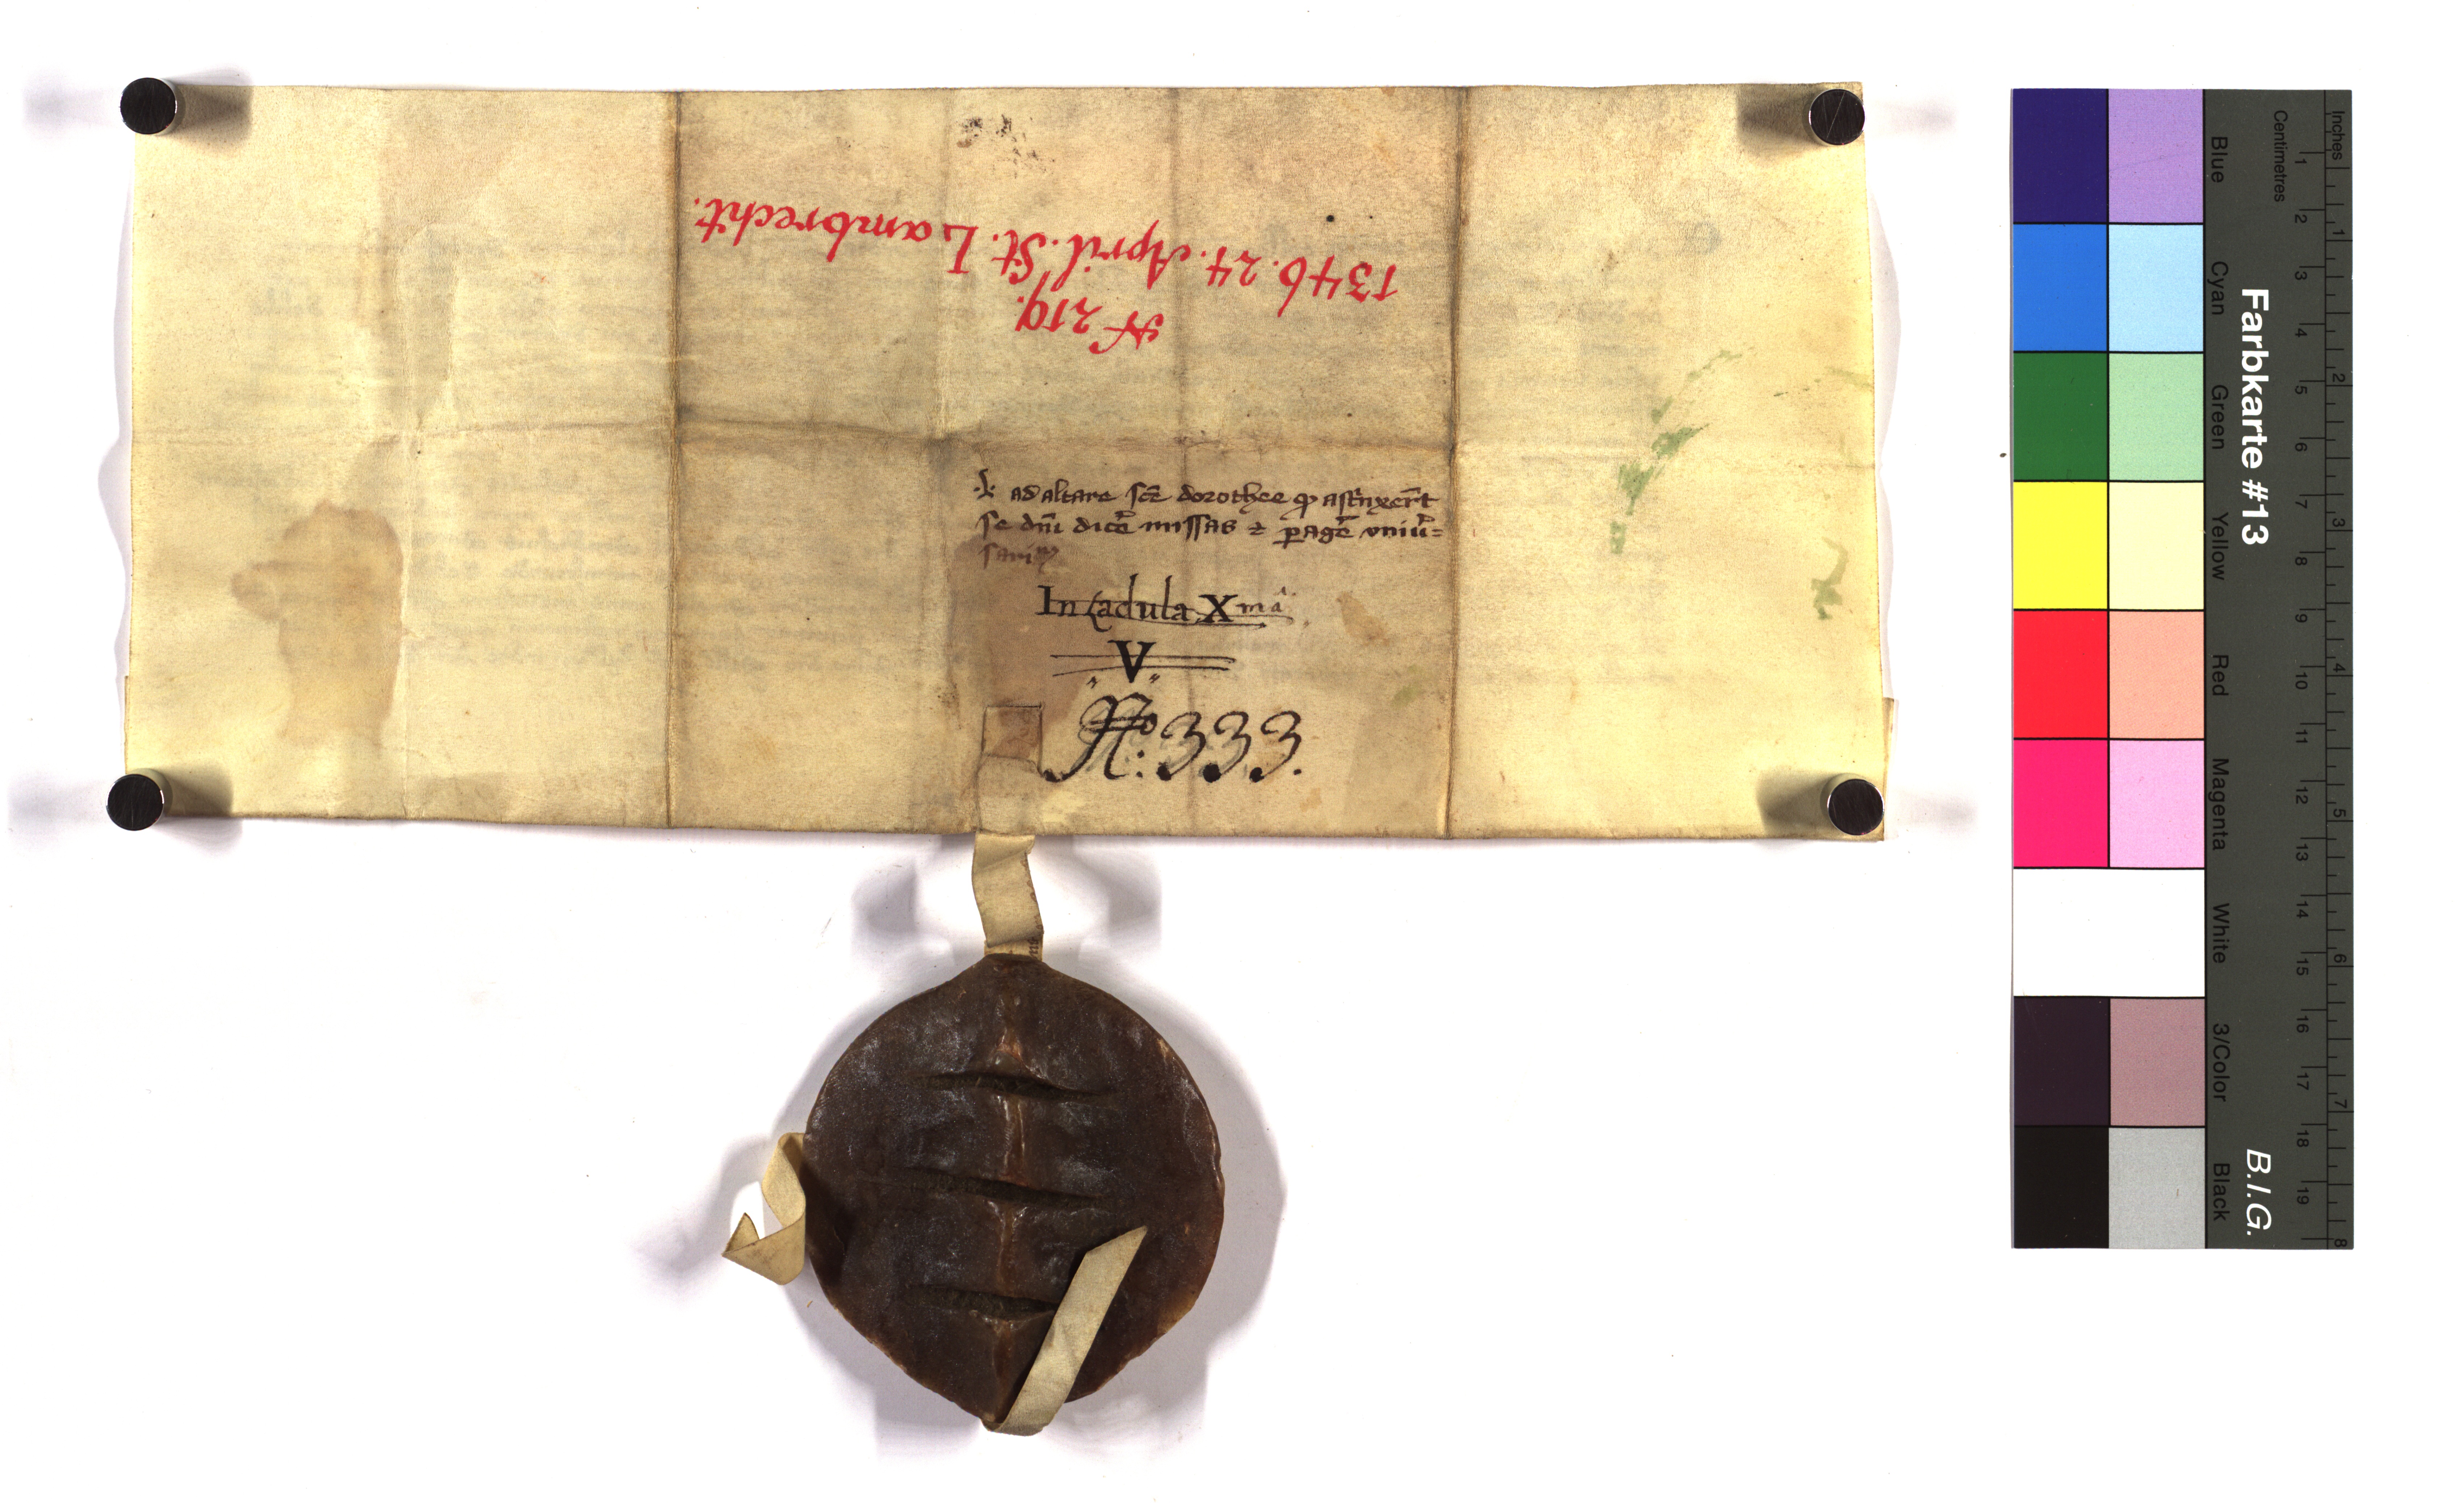 N 219.
1346. 24. April. St. Lambrecht.
ad altare sce dorothee qp astrixert
se dni dice missas & pagē vniū=
sariu
In Ladula Xma
V
No: 333.
Farbkarte #13
B.I.G.
Blue
Cyan
Green
Yellow
Red
Magenta
White
3/Color
Black
Centimetres
1 2 3 4 5 6 7 8 9 10 11 12 13 14 15 16 17 18 19
Inches
1 2 3 4 5 6 7 8